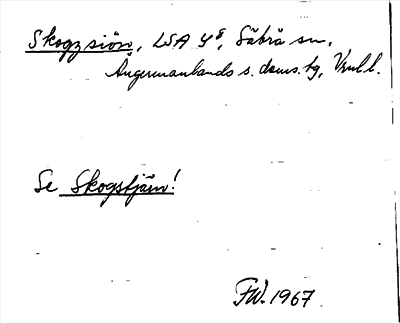 Skogzsiön, LSA Y⁸, Säbrå sn,
Ångermanlands s. doms. tg, Vnl l.
Se Skogstjärn!
FW. 1967